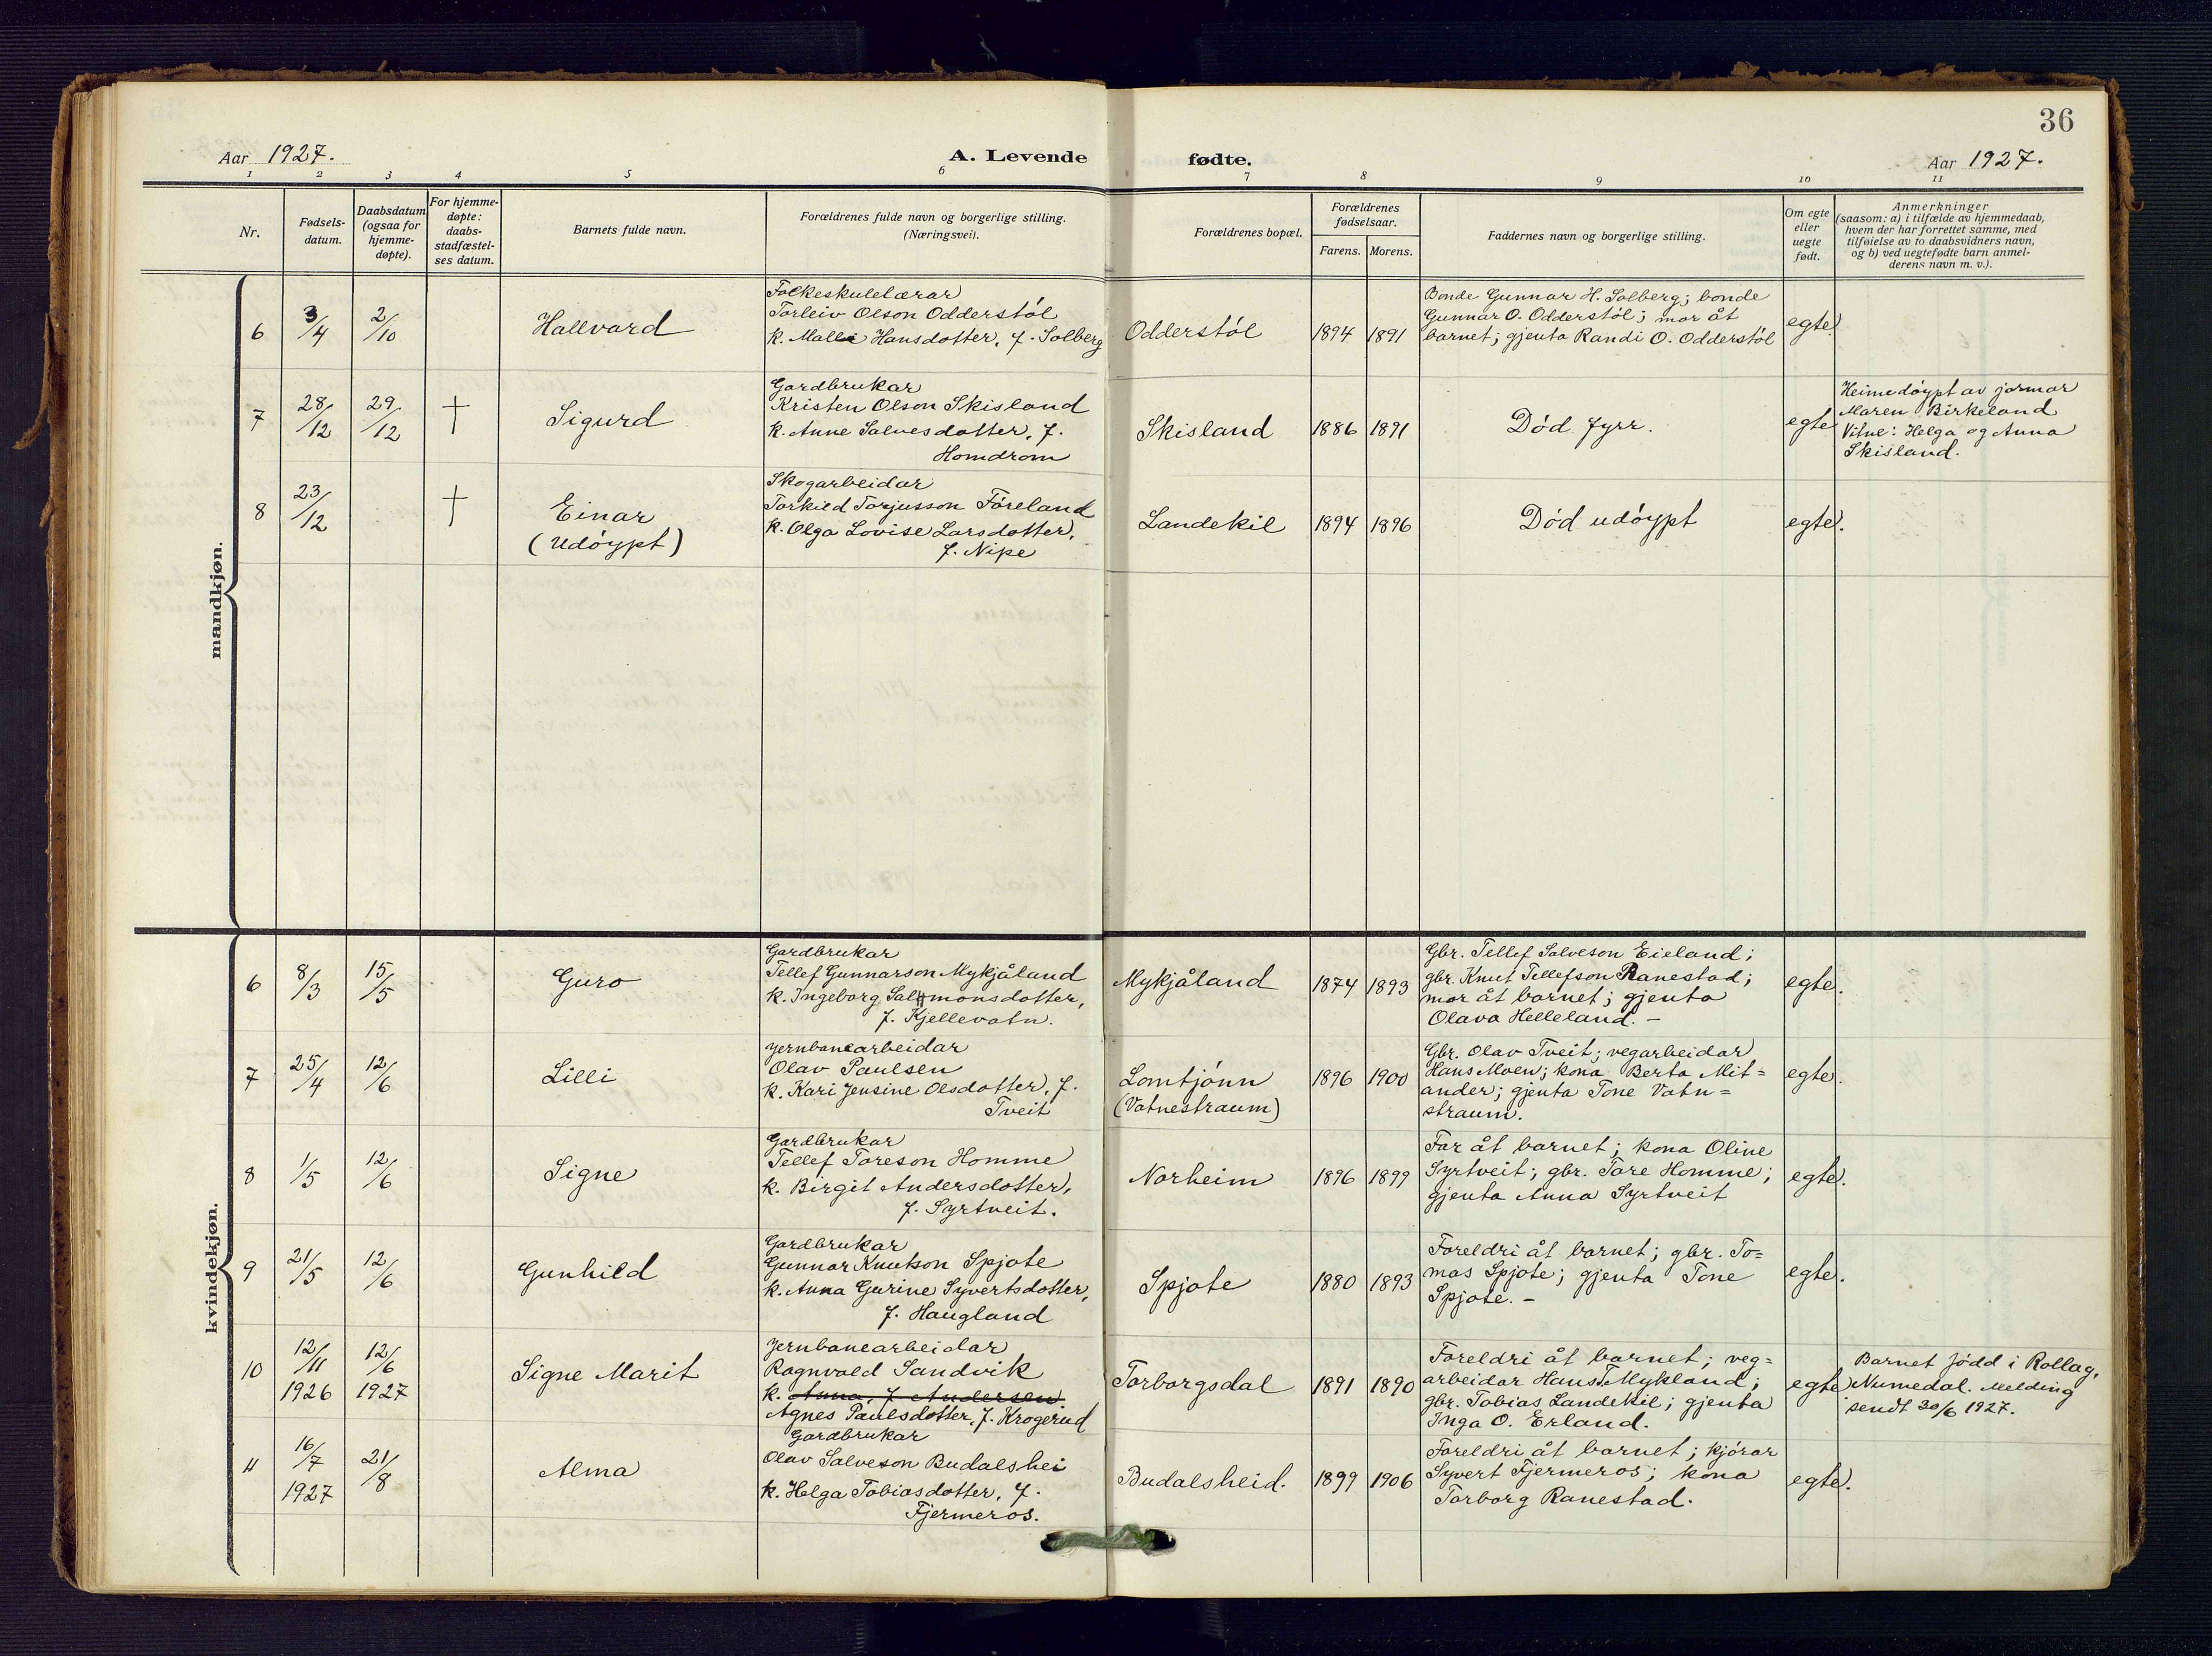 36
Aar 1927.
A. Levende fødte.
Aar 1927.
1 2 3 4 5 6 7 8 9 10 11
Nr.
Fødsels-
datum.
Daabsdatum
(ogsaa for
hjemme-
døpte).
For hjemme-
døpte:
daabs-
stadfæstel-
ses datum.
Barnets fulde navn.
Forældrenes fulde navn og borgerlige stilling.
(Næringsvei).
Forældrenes bopæl.
Forældrenes
fødselsaar.
Farens. Morens.
Faddernes navn og borgerlige stilling.
Om egte
eller
uegte
født.
Anmerkninger
(saasom: a) i tilfælde av hjemmedaab,
hvem der har forrettet samme, med
tilføielse av to daabsvidners navn,
og b) ved uegtefødte barn anmel-
derens navn m. v.).
mandkjøn.
6
3/4
2/10
Hallvard
Folkeskulelærar
Torleiv Olson Odderstól
k. Malli Hansdotter, f. Solberg
Odderstól
1894 1891
Bonde Gunnar H. Solberg; bonde
Gunnar O. Odderstól; mor åt
barnet; gjenta Randi O. Odderstól
egte.
7
28/12
29/12
†
Sigurd
Gardbrukar
Kristen Olson Skisland
k. Anne Salvesdotter, f.
Homdrom
Skisland
1886 1891
Død fyrr.
egte
Heimedóypt av jormor
Maren Birkeland
Vitne: Helga og Anna
Skisland.
8
23/12
†
Einar
(Udóypt)
Skogarbeidar
Torkild Torjusson Fóreland
k. Olga Lovise Larsdotter,
f. Nipe
Landekil
1894 1896
Død udóypt
egte.
kvindekjøn.
6
8/3
15/5
Guro
Gardbrukar
Tellef Gunnarson Mykjåland
k. Ingeborg Salmonsdotter,
f. Kjellevatn.
Mykjåland
1874 1893
Gbr. Tellef Salveson Eieland;
gbr. Knut Tellefson Ranestad;
mor åt barnet; gjenta
Olava Helleland. -
egte.
7
25/4
12/6
Lilli
Jernbanearbeidar
Olav Paulsen
k. Kari Jensine Olsdotter, f.
Tveit
Lomtjónn
(Vatnestraum)
1896 1900
Gbr. Olav Tveit; vegarbeidar
Hans Moen; kona Berta Mit=
ander; gjenta Tone Vatn=
straum.
egte.
8
1/5
12/6
Signe
Gardbrukar
Tellef Toreson Homme
k. Birgit Andersdotter,
f. Syrtveit.
Norheim
1896 1899
Far åt barnet; kona Oline
Syrtveit; gbr. Tore Homme;
gjenta Anna Syrtveit
egte.
9
21/5
12/6
Gunhild
Gardbrukar
Gunnar Knutson Spjote
k. Anna Gurine Syvertsdotter,
f. Haugland
Spjote
1880 1893
Foreldri åt barnet; gbr. To=
mas Spjote; gjenta Tone
Spjote. -
egte.
10
12/11
1926
12/6
1927
Signe Marit
Jernbanearbeidar
Ragnvald Sandvik
k. Anna, f. Andersen
Agnes Paulsdotter, f. Krogerud
Torborgsdal
1891 1890
Foreldri åt barnet; veg=
arbeidar Hans Mykland;
gbr. Tobias Landekil; gjenta
Inga O. Erland.
egte.
Barnet fødd i Rollag,
Numedal. Melding
sendt 30/6 1927.
11
16/7
1927
21/8
Alma
Gardbrukar
Olav Salveson Budalshei
k. Helga Tobiasdotter, f.
Fjermeros.
Budalsheid.
1899 1906
Foreldri åt barnet; kjórar
Syvert Fjermeros; kona
Torborg Ranestad.
egte.